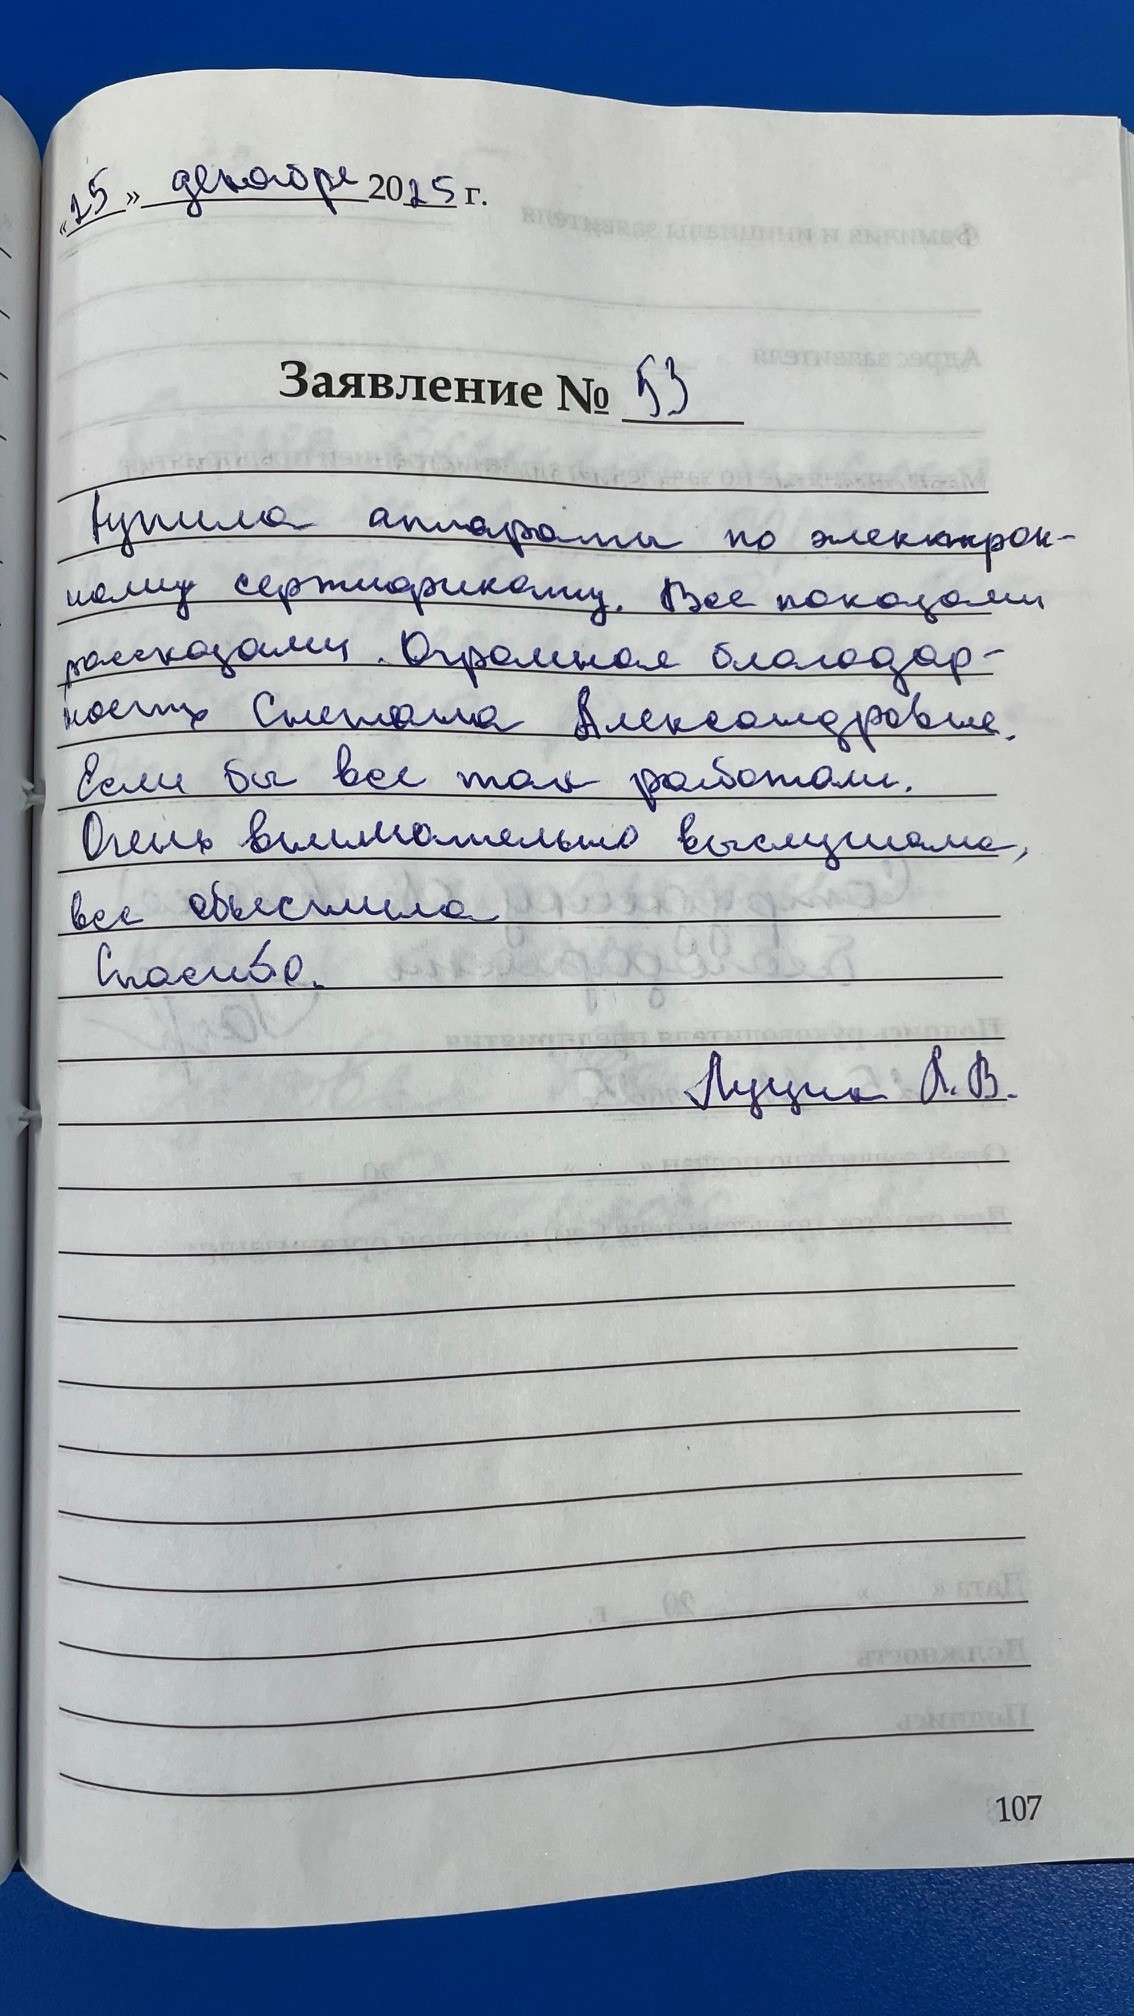 «25» декабря 2025 г.
Заявление № 53
Купила аппараты по электрон-
ному сертификату. Все показали
рассказали. Огромная благодар-
ность Светлана Александровне.
Если бы все так работали.
Очень внимательно выслушала,
все объяснила
Спасибо.
Луцик Л.В.
107